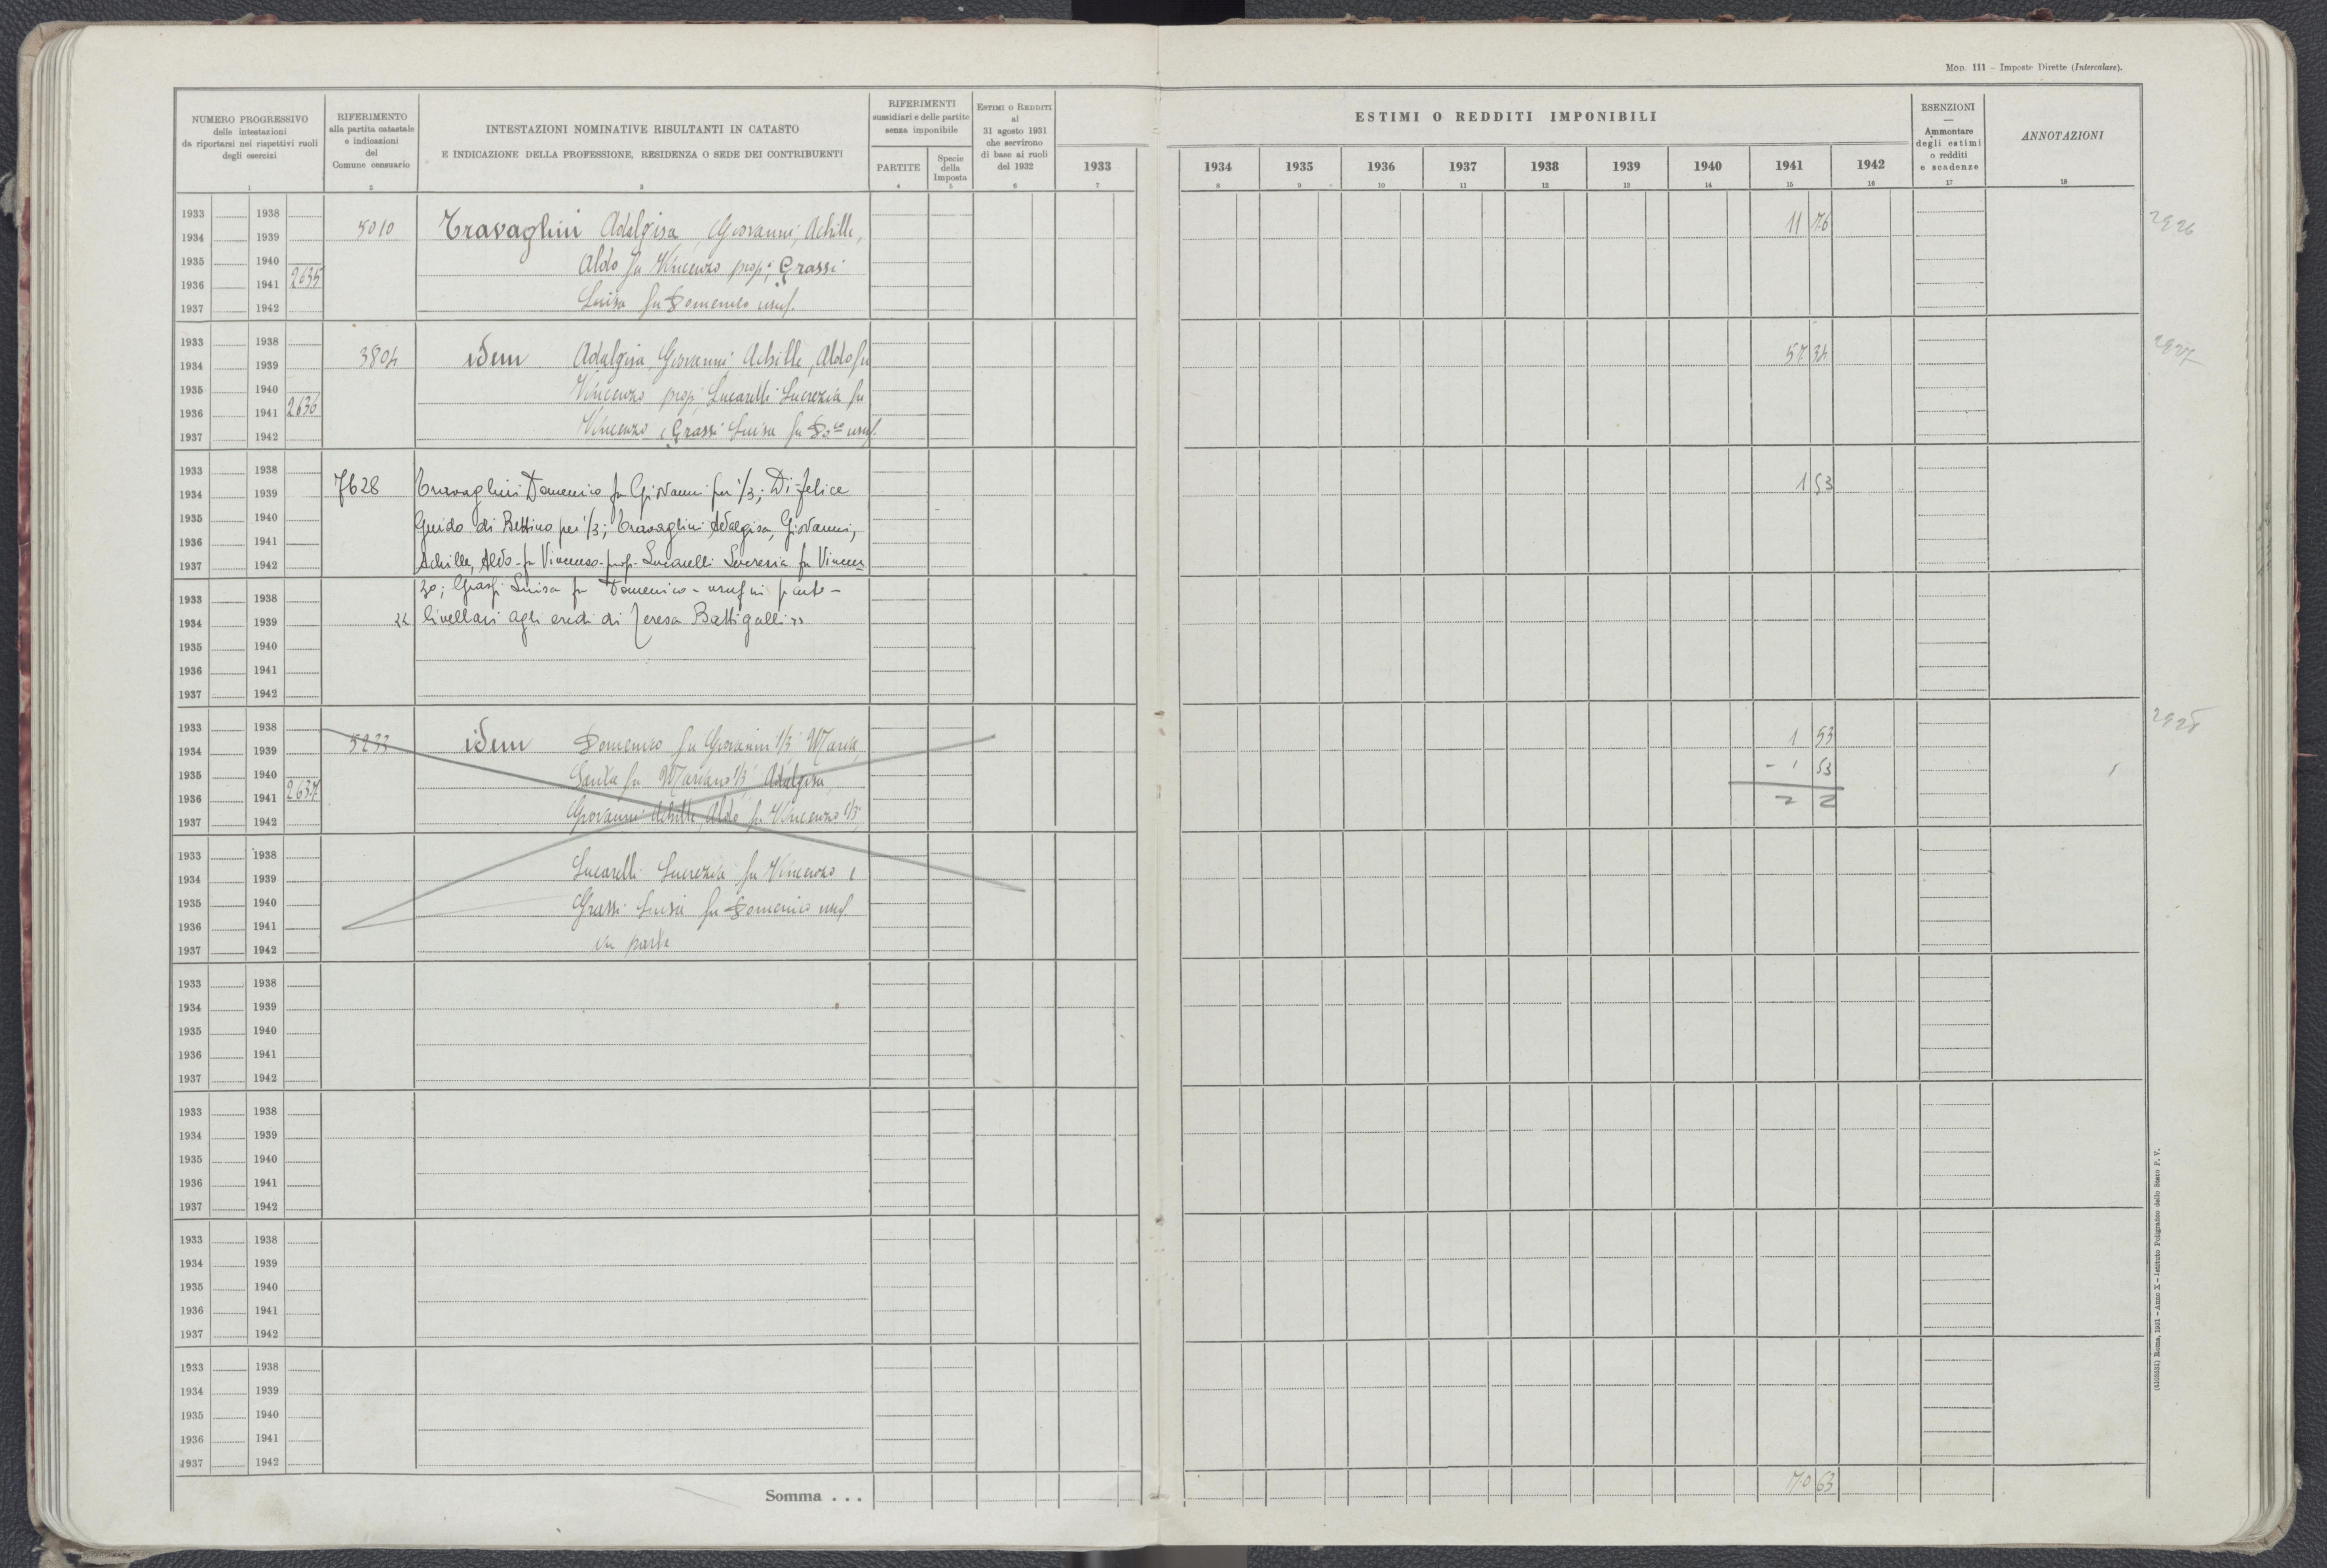 Mod. 111 – Imposte Dirette (Intercalare).
NUMERO PROGRESSIVO
delle intestazioni
da riportarsi nei rispettivi ruoli
degli esercizi
1
RIFERIMENTO
alla partita catastale
e indicazioni
del
Comune censuario
2
INTESTAZIONI NOMINATIVE RISULTANTI IN CATASTO
E INDICAZIONE DELLA PROFESSIONE, RESIDENZA O SEDE DEI CONTRIBUENTI
3
RIFERIMENTI
sussidiari e delle partite
senza imponibile
PARTITE
4
Specie
della
Imposta
5
Estimi o Redditi
al
31 agosto 1931
che servirono
di base ai ruoli
del 1932
6
ESTIMI O REDDITI IMPONIBILI
1933 1934 1935 1936 1937 1938 1939 1940 1941 1942
7 8 9 10 11 12 13 14 15 16
ESENZIONI
—
Ammontare
degli estimi
o redditi
e scadenze
17
ANNOTAZIONI
18
1933 1938
1934 1939 5010 Travaglini Adalgisa, Giovanni, Achille, 11 76 2926
1935 1940 Aldo fu Vincenzo prop; Grassi
1936 1941 2635
1937 1942 Luisa fu Domenico usuf.
1933 1938
1934 1939 3804 idem Adalgisa, Giovanni, Achille, Aldo fu 57 34 2927
1935 1940 Vincenzo prop; Lucarelli Lucrezia fu
1936 1941 2636
1937 1942 Vincenzo, Grassi Luisa fu Do.co usuf.
1933 1938
1934 1939 7628 Travaglini Domenico fu Giovanni per 1/3; Di Felice 1 53
1935 1940 Guido di Bettino per 1/3; Travaglini Adalgisa, Giovanni,
1936 1941
1937 1942 Achille, Aldo fu Vincenzo-prop- Lucarelli Lucrezia fu Vincen
1933 1938 zo; Grassi Luisa fu Domenico - usuf in parte -
1934 1939 livellari agli eredi di Teresa Battigalli
1935 1940
1936 1941
1937 1942
1933 1938
1934 1939 5233 idem Domenico fu Giovanni 1/3, Maria, 1 53 2928
1935 1940 Santa fu Mariano 1/3, Adalgisa, - 1 53
1936 1941 2637
1937 1942 Giovanni Achille, Aldo fu Vincenzo 1/3,
1933 1938
1934 1939 Lucarelli Lucrezia fu Vincenzo e
1935 1940 Grassi Luisa fu Domenico usuf.
1936 1941
1937 1942 in parte
1933 1938
1934 1939
1935 1940
1936 1941
1937 1942
1933 1938
1934 1939
1935 1940
1936 1941
1937 1942
1933 1938
1934 1939
1935 1940
1936 1941
1937 1942
1933 1938
1934 1939
1935 1940
1936 1941
1937 1942
Somma . . . 70 63
Roma, 1931 – Anno X – Istituto Poligrafico dello Stato P. V.